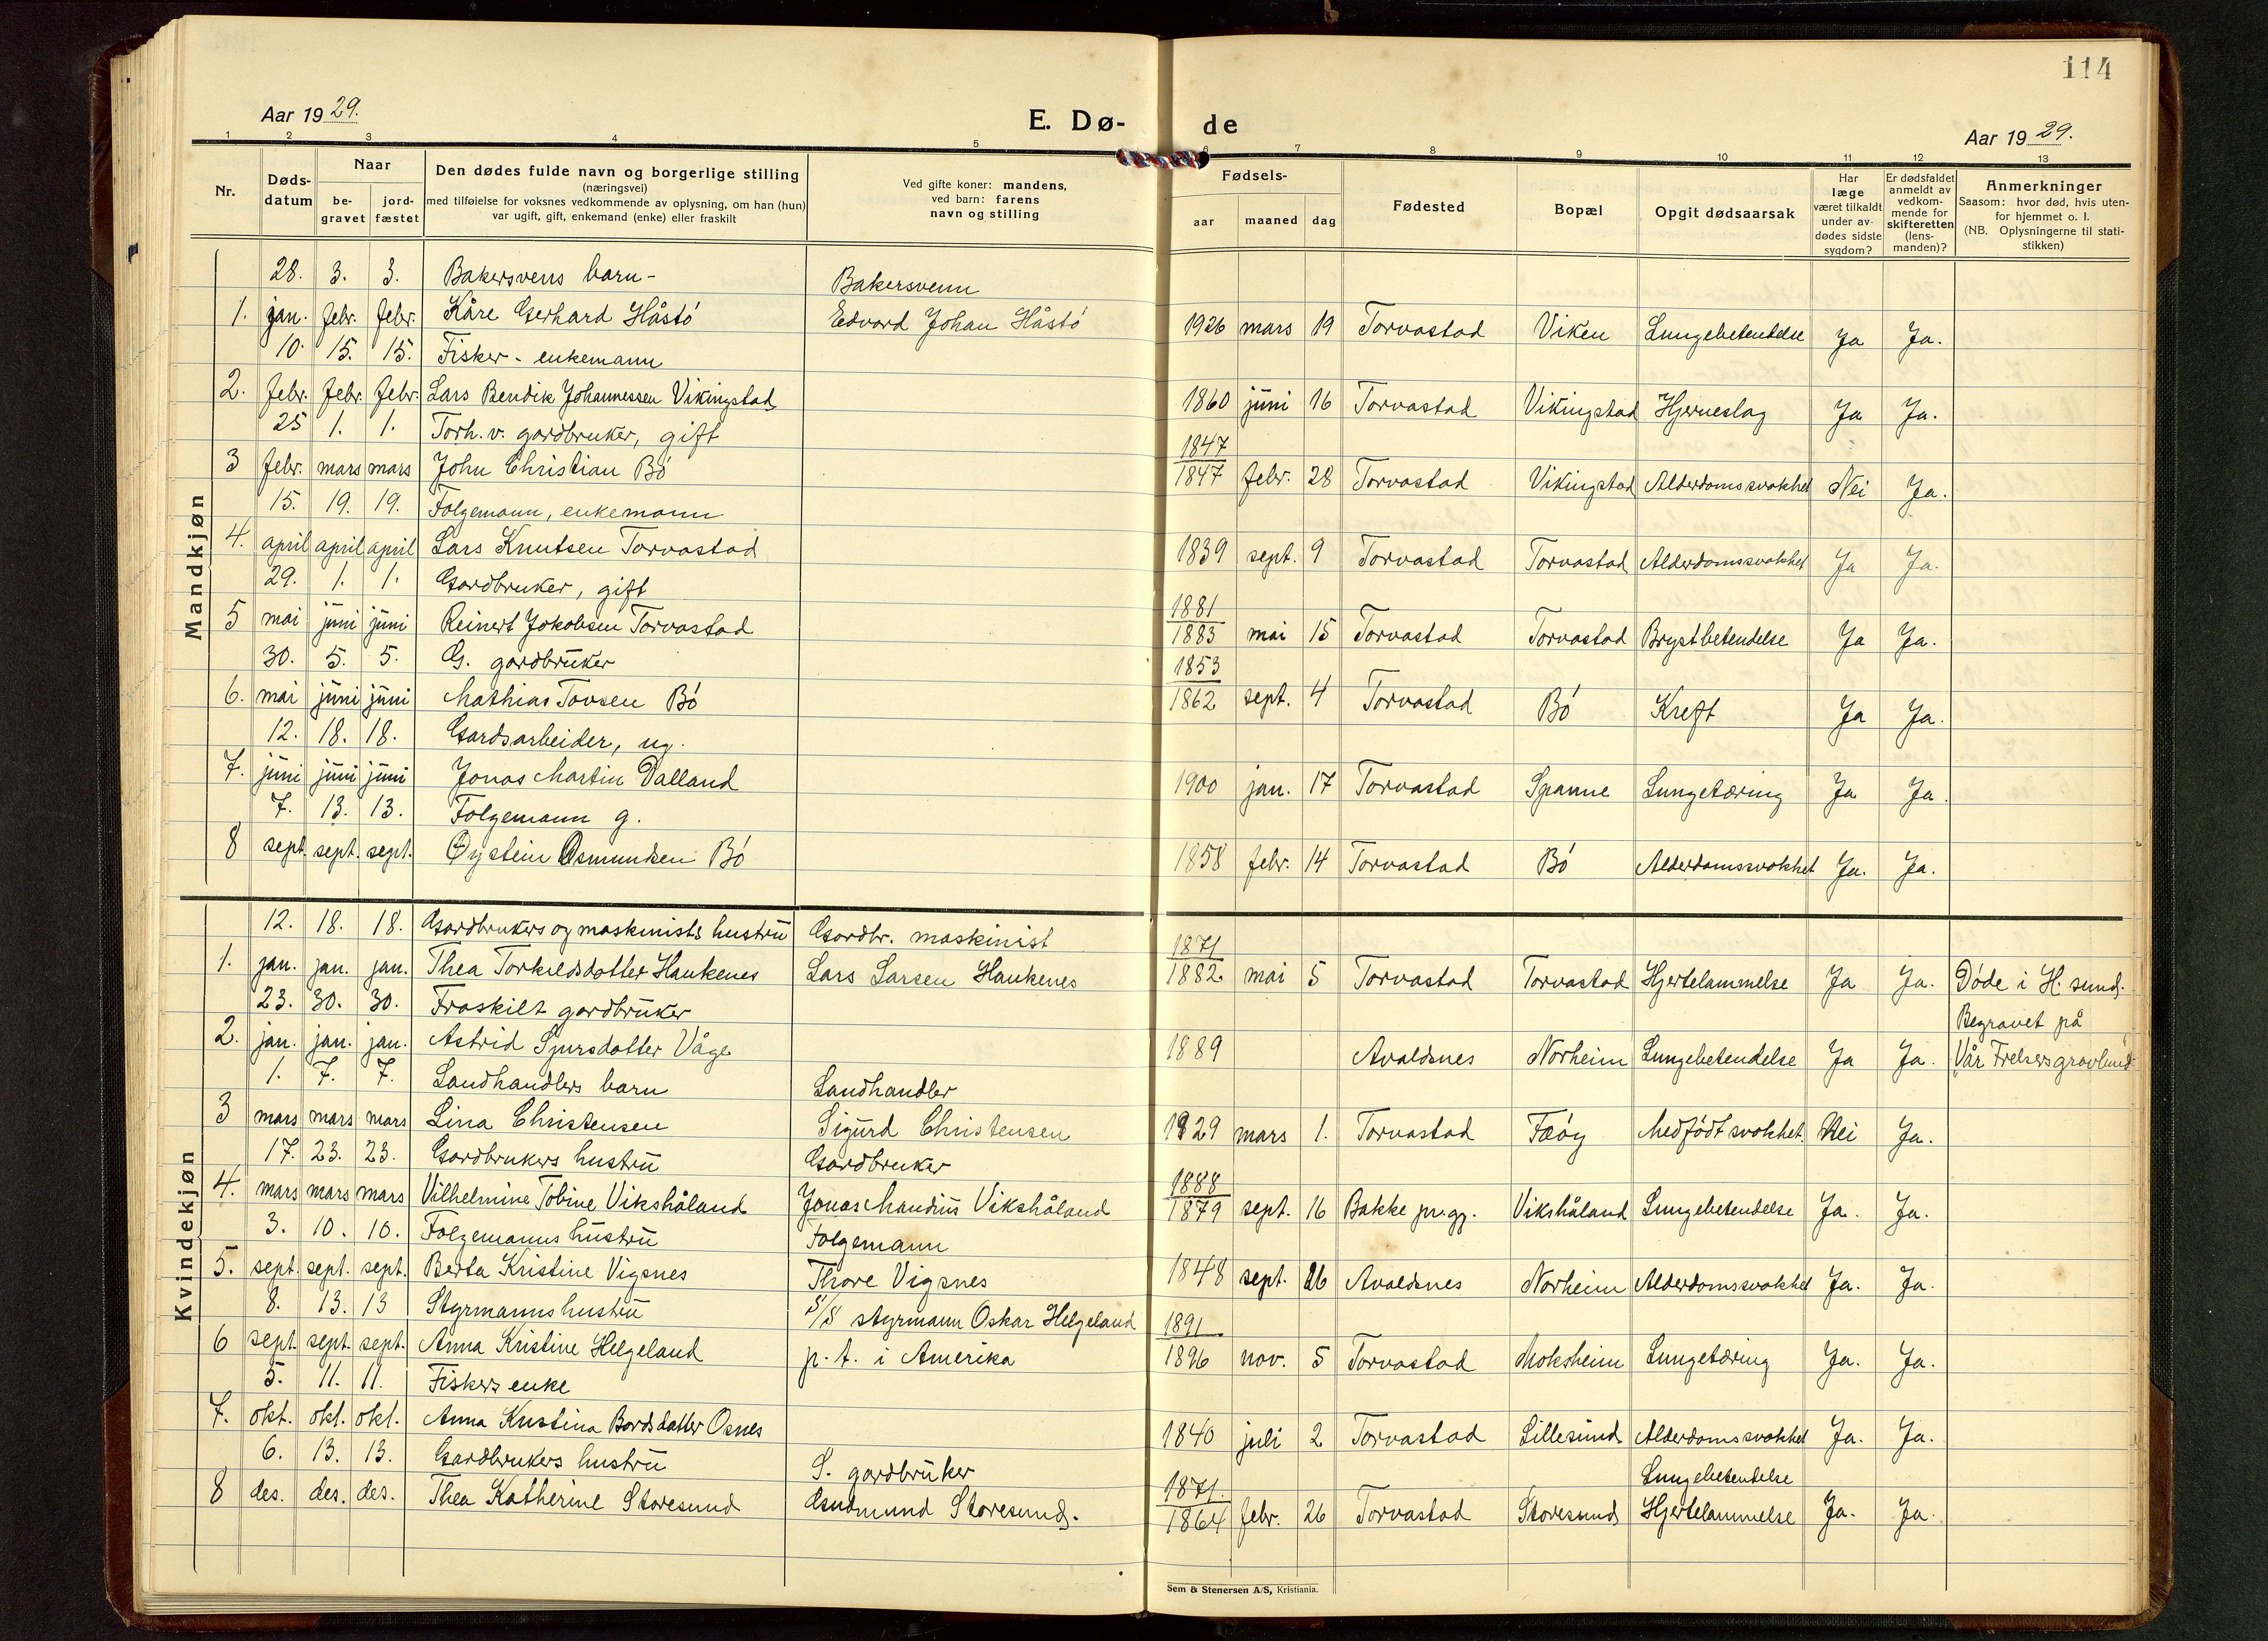 114
Aar 1929.
E. Dø-
de
Aar 1929.
1 2 3 4 5 6 7 8 9 10 11 12 13
Nr.
Døds-
datum
Naar
be-
gravet
jord-
fæstet
Den dødes fulde navn og borgerlige stilling
(næringsvei)
med tilføielse for voksnes vedkommende av oplysning, om han (hun)
var ugift, gift, enkemand (enke) eller fraskilt
Ved gifte koner: mandens,
ved barn: farens
navn og stilling
Fødsels-
aar maaned dag
Fødested
Bopæl
Opgit dødsaarsak
Har
læge
været tilkaldt
under av-
dødes sidste
sygdom?
Er dødsfaldet
anmeldt av
vedkom-
mende for
skifteretten
(lens-
manden)?
Anmerkninger
Saasom: hvor død, hvis uten-
for hjemmet o. l.
(NB. Oplysningerne til stati-
stikken)
Mandkjøn
28. 3. 3. Bakersvens barn - Bakersvenn
1. jan. febr. febr. Kåre Gerhard Håstö Edvard Johan Håstö 1926 mars 19 Torvastad Viken Lungebetendelse Ja Ja.
10. 15. 15. Fisker - enkemann
2. febr. febr. febr. Lars Bendik Johannessen Vikingstad 1860 juni 16 Torvastad Vikingstad Hjerneslag Ja Ja.
25 1. 1. Torh. v. gardbruker, gift 1847
3 febr. mars mars John Christian Bö 1847 febr. 28 Torvastad Vikingstad Alderdomssvakhet Nei Ja.
15. 19. 19. Folgemann, enkemann
4. april april april Lars Knutsen Torvastad 1839 sept. 9 Torvastad Torvastad Alderdomssvakhet Ja Ja.
29. 1. 1. Gardbruker, gift 1881
5 mai juni juni Reinert Jakobsen Torvastad 1883 mai 15 Torvastad Torvastad Brystbetendelse Ja Ja.
30. 5. 5. G. gardbruker 1853
6. mai juni juni Mathias Tovsen Bö 1862 sept. 4 Torvastad Bö Kreft Ja Ja.
12. 18. 18. Gardsarbeider, ug.
7. juni juni juni Jonas Martin Dalland 1900 jan. 17 Torvastad Spanne Lungetæring Ja Ja.
7. 13. 13. Folgemann g.
8 sept. sept. sept. Øystein Osmundsen Bö 1858 febr. 14 Torvastad Bö Alderdomssvakhet Ja. Ja.
Kvindekjøn
12. 18. 18. Gardbrukers og maskinists hustru Gardbr. maskinist 1871
1. jan. jan. jan. Thea Torkildsdatter Haukenes Lars Larsen Haukenes 1882 mai 5 Torvastad Torvastad Hjertelammelse Ja Ja. Döde i H. sund.
23. 30. 30. Fraskilt gardbruker Begravet på
2. jan. jan. jan. Astrid Sjursdatter Våge 1889 Avaldsnes Norheim Lungebetendelse Ja Ja. Vår Frelsers gravlund
1. 7. 7. Landhandlers barn Landhandler
3 mars mars mars Lina Christensen Sigurd Christensen 1929 mars 1. Torvastad Fæöy Medfödt svakhet Nei Ja.
17. 23. 23. Gardbrukers hustru Gardbruker 1888
4. mars mars mars Vilhelmine Tobine Vikshåland Jonas Maudius Vikshåland 1879 sept. 16 Bakke pr.gj. Vikshåland Lungebetendelse Ja. Ja.
3. 10. 10. Folgemanns hustru Folgemann
5. sept. sept. sept. Berta Kristine Vigsnes Thore Vigsnes 1848 sept. 26 Avaldsnes Norheim Alderdomssvakhet Ja. Ja.
8. 13. 13 Styrmanns hustru S/S styrmann Oskar Helgeland 1891
6 sept. sept. sept. Anna Kristine Helgeland p. t. i Amerika 1896 nov. 5 Torvastad Moksheim Lungetæring Ja. Ja.
5. 11. 11. Fiskers enke
7. okt. okt. okt. Anna Kristina Bordsdatter Osnes 1840 juli 2 Torvastad Lillesund Alderdomssvakhet Ja. Ja.
6. 13. 13. Gardbrukers hustru S. gardbruker 1871. Lungebetendelse
8 des. des. des. Thea Katherine Storesund Gudmund Storesund. 1864 febr. 26 Torvastad Storesund Hjertelammelse Ja. Ja.
Sem & Stenersen A/S, Kristiania.